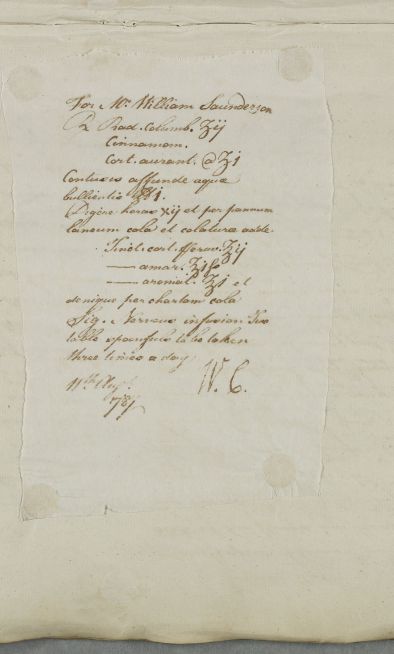 For Mr. William Saunderson
℞ Rad. Columb. ʒij
Cinnamom.
Cort. aurant. @ ʒj
Contusis affunde aquæ
bullientis ℔j.
Digere horas xij et per pannum
laneum cola et colaturæ adde.
Tinct. cort. Peruv. ℥ij
—— amar. ℥jß
—— aromat. ℥j et
denique per chartam cola
Sig. Nervous infusion. Two
table spoonfuls to be taken
three times a day
11th
W. C.